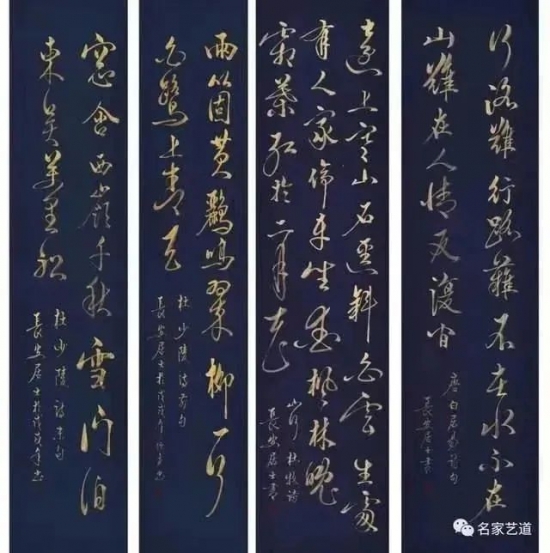 行路難行路難不在水不在
山難在人情反覆間
唐白居易詩句
長安居士書
遠上寒山石徑斜白雲生處
有人家停車坐愛楓林晚
霜葉紅於二月花
山行杜牧詩
長安居士書
兩箇黃鸝鳴翠柳一行
白鷺上青天
杜少陵詩前句
長安居士於戊戌年
窗含西嶺千秋雪門泊
東吳萬里船
杜少陵詩末句
長安居士於戊戌年
名家艺道